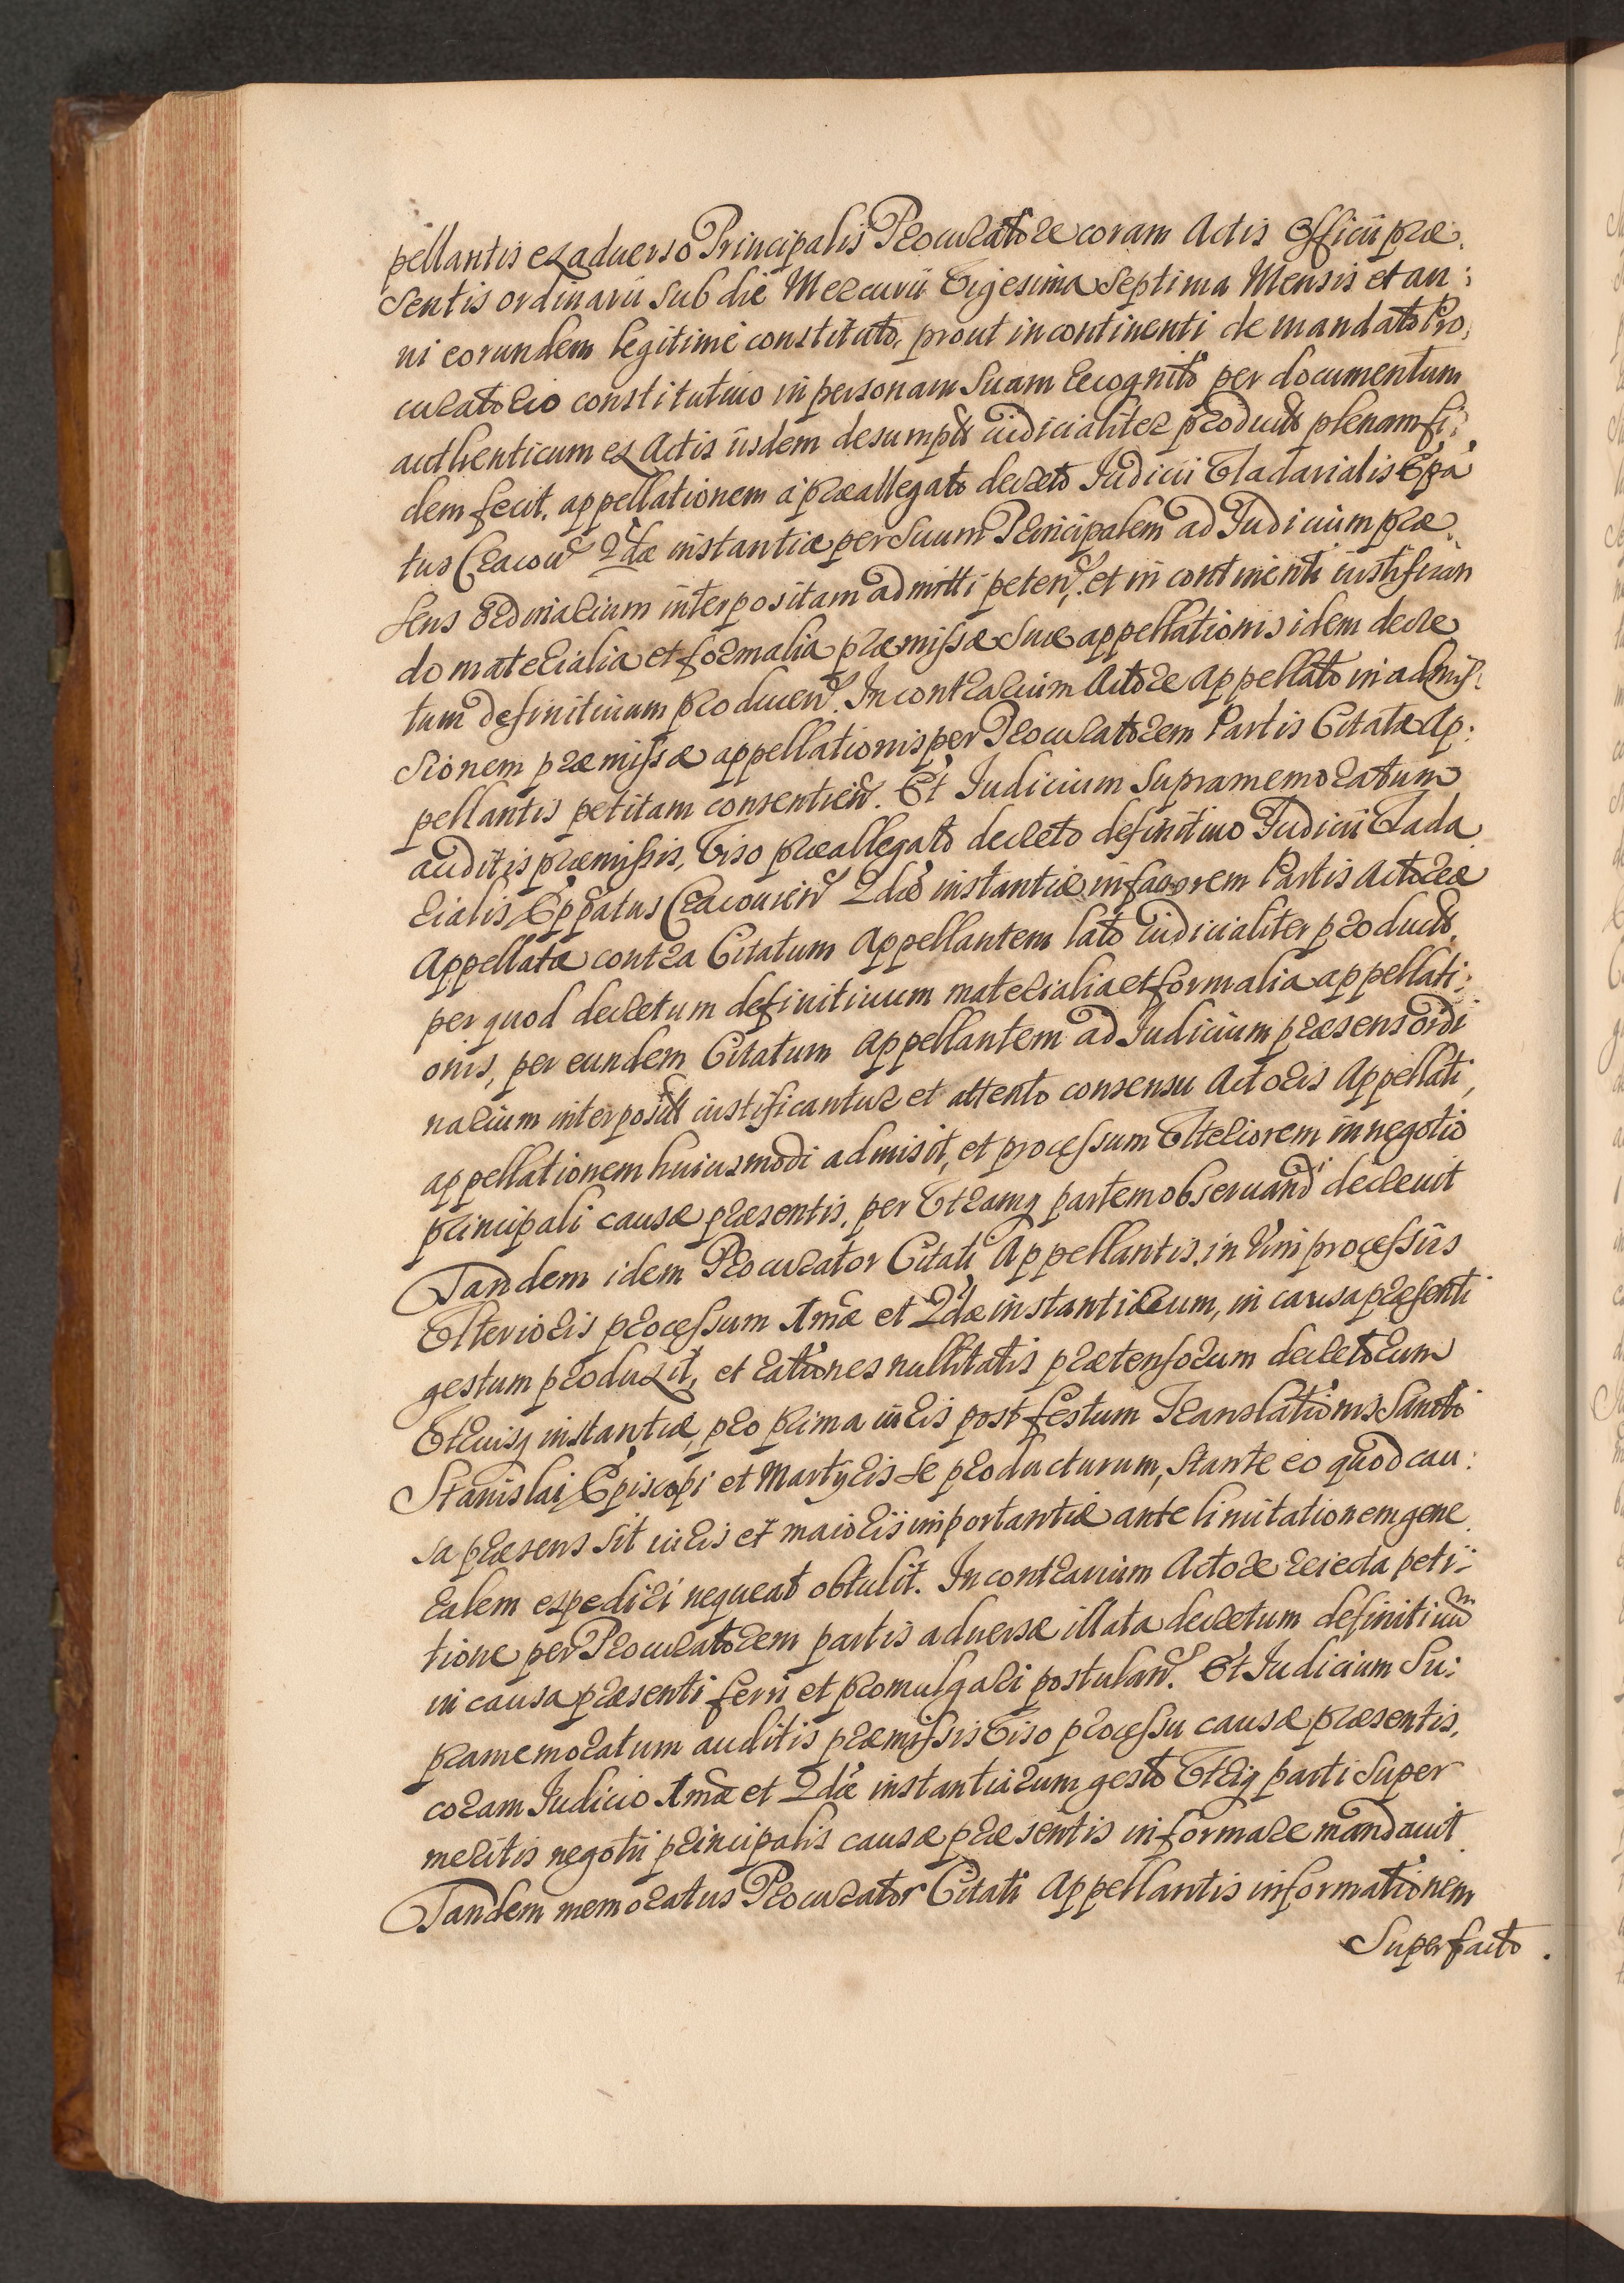 pellantis ex aduerso Principalis Procuratore coram Actis Officii præ,
sentis ordinarii sub die Mercurii Vigesima Septima Mensis et an:
ni eorundem legitimè constituto, prout incontinenti de mandato Pro,
curatorio constitutiuo in personam suam recognito per documentum
authenticum ex Actis iisdem desumptũ iudicialiter produc̃to plenam fi:
dem fecit, appellationem à præallegato decreto Iudicii Vladarialis Ep̃pa
tus Cracou̕ 2dæ instantiæ per suum Principalem ad Iudicium præ,
sens Ordinarium interpositam admitti peteñ, et in continenti iustifican
do materialia et formalia præmissæ suæ appellationis idem decre
tum definitiuum produceñ. In contrarium Actore Appellato in admis:
sionem præmissæ appellationis per Procuratorem Partis Citatæ Ap:
pellantis petitam consentieñ. Et Iudicium supramemoratum
auditis præmissis, Viso præallegato decreto definitiuo Iudicii Vlada
rialis Ep̃patus Cracouieñ 2dæ instantiæ in fauorem Partis Actoreæ
Appellatæ contra Citatum Appellantem lato iudicialiter producto,
per quod decretum definitiuum materialia et formalia appellati:
onis, per eundem Citatum Appellantem ad Iudicium præsens ordi
narium interpositæ iustificantur et attento consensu Actoris Appellati,
appellationem huiusmodi admisit, et processum Vlteriorem in negotio
principali causæ præsentis, per Vtramq partem obseruand̃ decreuit
Tandem idem Procurator Citati Appellantis, in Vim processus
Vlterioris processum 1mæ et 2dæ instantiarum, in causa præsenti
gestum produxit, et rationes nullitatis prætensorum decretorum
Vtriusq instantiæ, pro prima iuris post festum Translationis Sancti
Stanislai Episcopi et Martyris se producturum, stante eo quod cau:
sa præsens sit iuris et maioris importantiæ ante limitationem gene
ralem expediri nequeat obtulit. In contrarium Actore reiecta peti:
tione per Procuratorem partis aduersæ illata decretum definitiuũ
in causa præsenti ferri et promulgari postulañ. Et Iudicium Su:
pramemoratum auditis præmissis Viso processu causæ præsentis,
coram Iudicio 1mæ et 2dæ instantiarum gesto Vtriq parti super
meritis negotii principalis causæ præsentis informare mandauit.
Tandem memoratus Procurator Citati Appellantis informationem
Super facto.